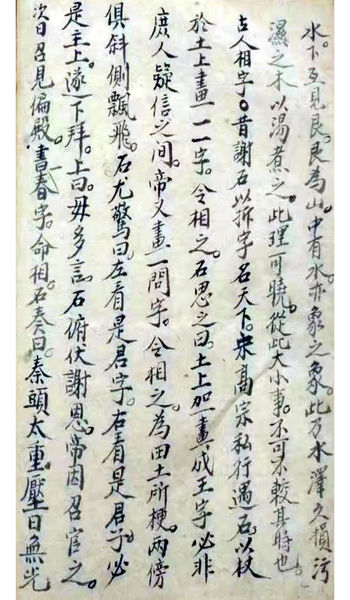 水。下互見艮。艮為山。中有水。亦象之象。此乃水澤久損污
濕之木以湯煮之。此理可曉。從此大小事。不可不較其時也
古人相字。昔謝石以拆字名天下。宋高宗私行遇石。以杖
於土上畫一一字。令相之。石思之曰。土上加一畫成王字。必非
庶人。疑信之間。帝又畫一問字。令相之。為田土所梗。兩傍
俱斜側飄飛。石尤驚曰。左看是君字。右看是君字。必
是主上。遂下拜。上曰。毋多言。石俯伏謝恩。帝因召官之。
次日召見偏殿。書春字。命相。石奏曰。秦頭太重。壓日無光